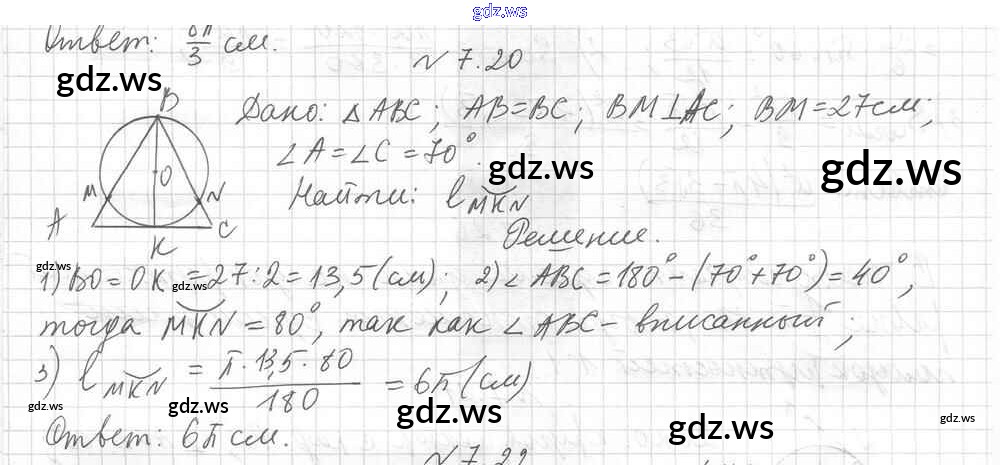 gdz.ws
Ответ: 8π/3 см.
N 7.20
gdz.ws
B
Дано: △ABC; AB=BC; BM⊥AC; BM=27см;
∠A=∠C=70°.
gdz.ws
gdz.ws
O
M
N
Найти: l MKN
A
C
K
Решение.
gdz.ws
1) BO=OK=27:2=13,5(см); 2) ∠ABC=180°-(70°+70°)=40°,
gdz.ws
тогда MKN=80°, так как ∠ABC- вписанный;
3) l MKN = π·13,5·80/180 = 6π(см)
gdz.ws
gdz.ws
gdz.ws
gdz.ws
gdz.ws
Ответ: 6π см.
N 7.22